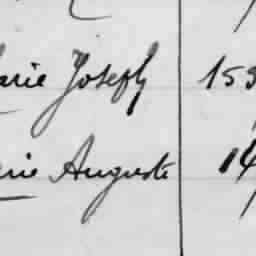 arie Joseph 159
erie Auguste 14